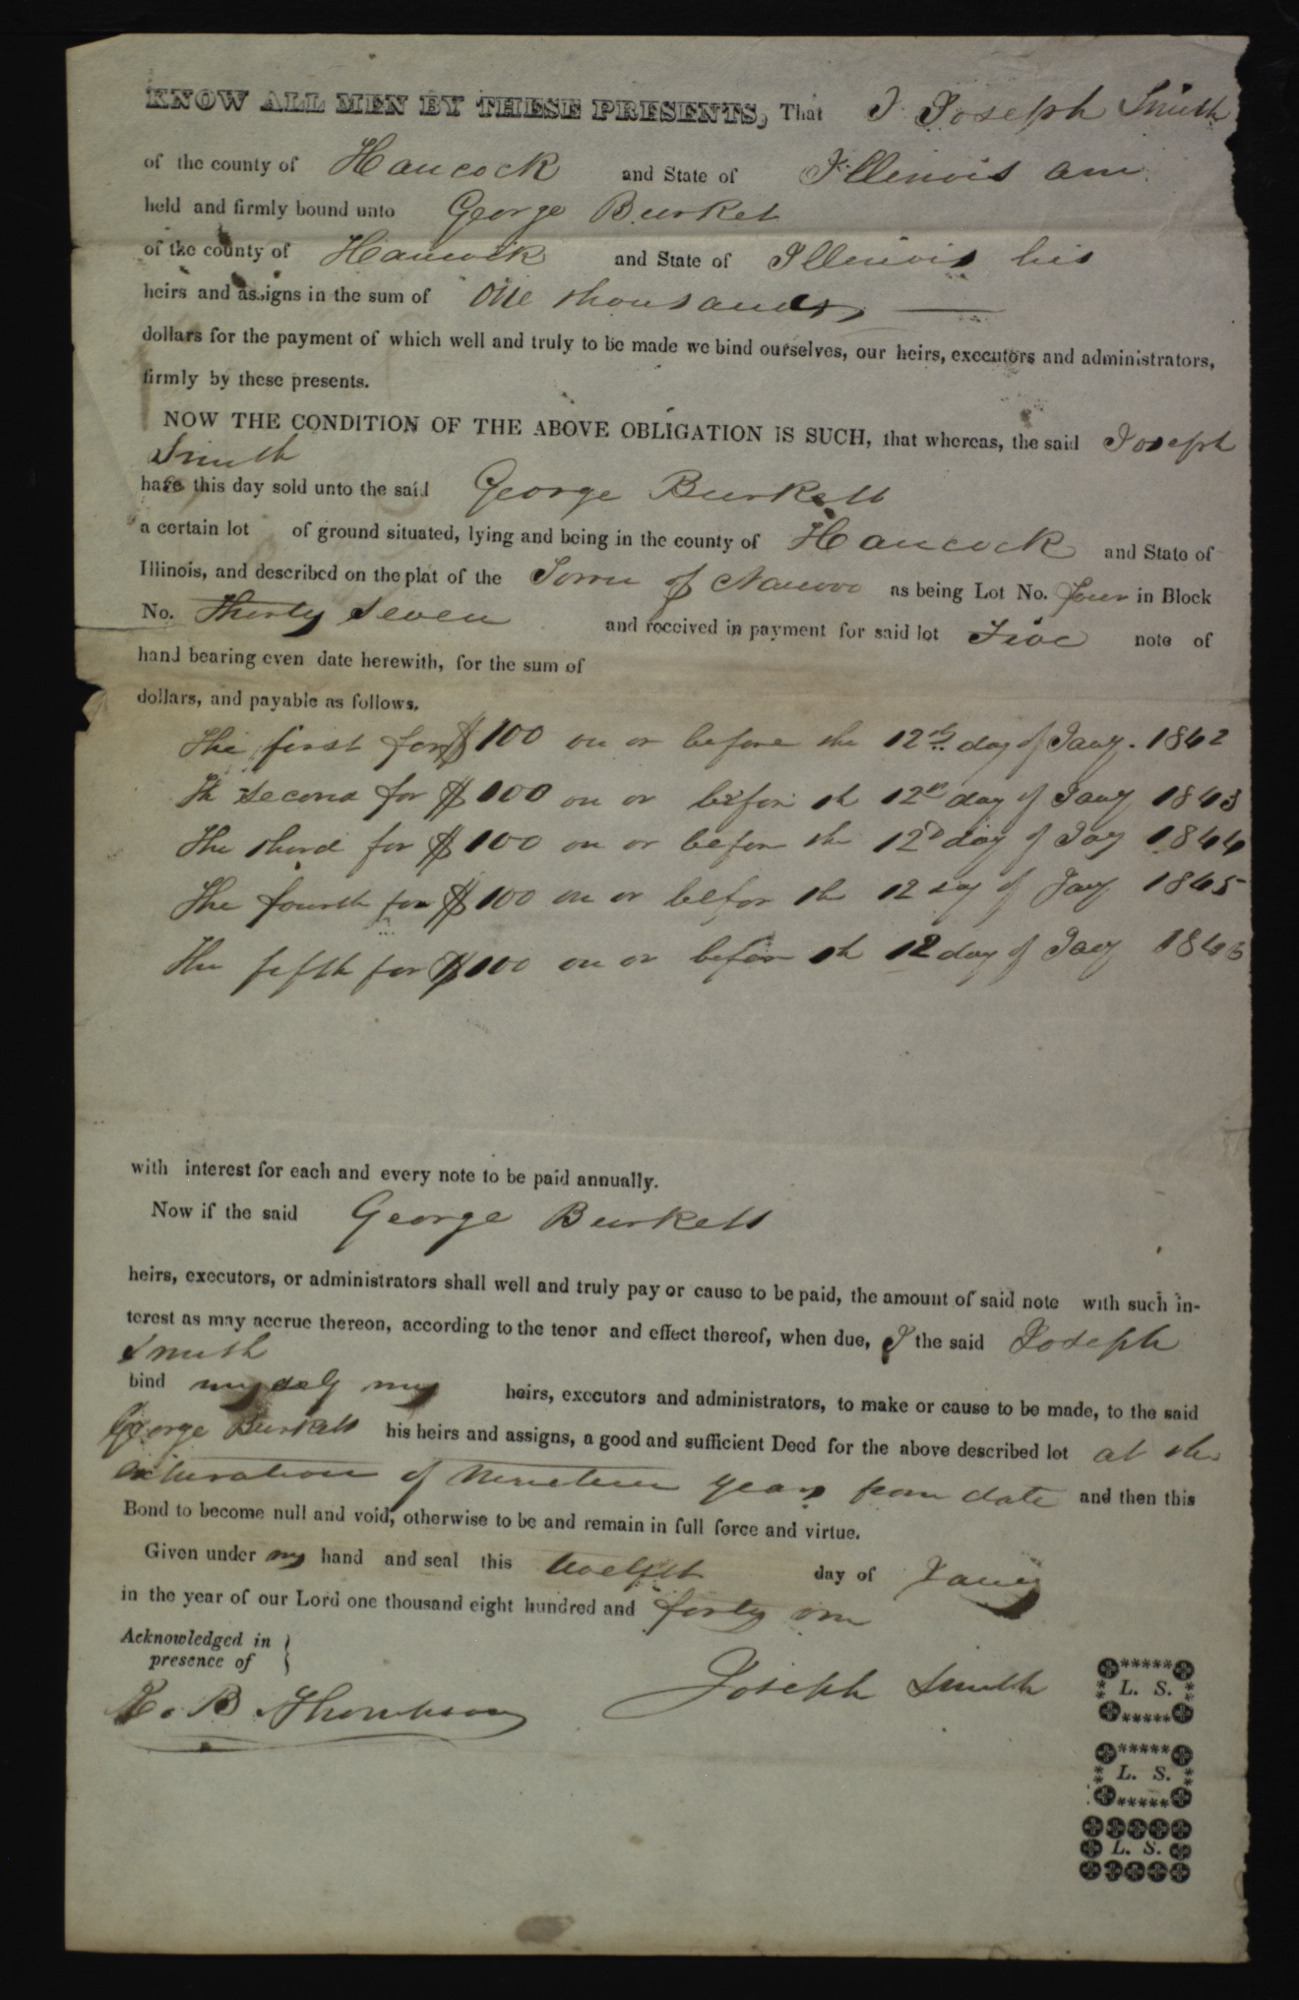 KNOW ALL MEN BY THESE PRESENTS, That I Joseph Smith
of the county of Hancock and State of Illenois am
held and firmly bound unto George Burket
of the county of Hancock and State of Illenois his
heirs and assigns in the sum of One thousand
dollars for the payment of which well and truly to be made we bind ourselves, our heirs, executors and administrators,
firmly by these presents.
NOW THE CONDITION OF THE ABOVE OBLIGATION IS SUCH, that whereas, the said Joseph
Smith
have this day sold unto the said George Burkett
a certain lot of ground situated, lying and being in the county of Hancock and State of
Illinois, and described on the plat of the Town of Nauvoo as being Lot No. Four in Block
No. Thirty Seven and received in payment for said lot Five note of
hand bearing even date herewith, for the sum of
dollars, and payable as follows.
The first for $100 on or before the 12th day of Jany. 1842
Th second for $100 on or befor th 12th day of Jany 1843
The third for $100 on or befor the 12th day of Jay 1844
The fourth for $100 on or befor th 12 day of Jany 1845
The fifth for $100 on or befor th 12 day of Jany 1846
with interest for each and every note to be paid annually.
Now if the said George Burkett
heirs, executors, or administrators shall well and truly pay or cause to be paid, the amount of said note with such in-
terest as may accrue thereon, according to the tenor and effect thereof, when due, I the said Joseph
Smith
bind myself my heirs, executors and administrators, to make or cause to be made, to the said
George Burkett his heirs and assigns, a good and sufficient Deed for the above described lot at the
of nineteen years from date and then this
Bond to become null and void, otherwise to be and remain in full force and virtue.
Given under my hand and seal this twelfth day of Jany
in the year of our Lord one thousand eight hundred and forty one
Acknowledged in
presence of }
R. B. Thompson Joseph Smith L. S.
L. S.
L. S.